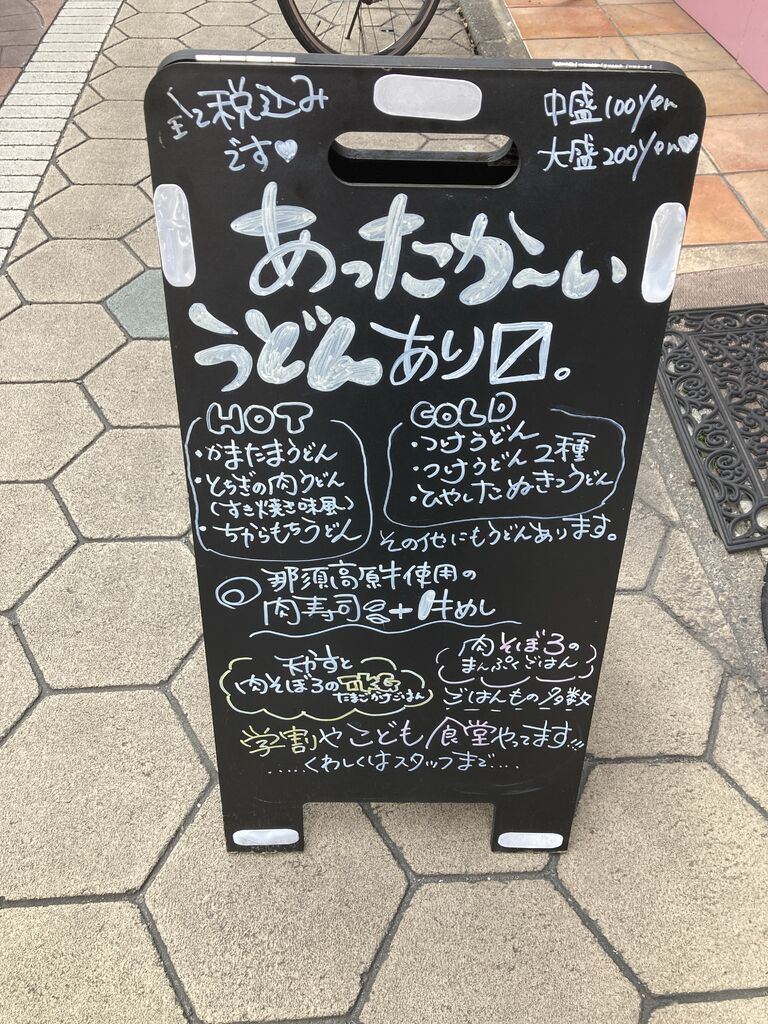 全て税込み
です♡
中盛100yen
大盛200yen♡
あったか〜い
うどんあり〼。
HOT
・かまたまうどん
・とちぎの肉うどん
(すき焼き味風)
・ちからもちうどん
COLD
・つけうどん
・つけうどん2種
・ひやしたぬきつうどん
その他にもうどんあります。
◎那須高原牛使用の
肉寿司
丼めし
天かすと
肉そぼろのTKG
たまごかけごはん
肉そぼろの
まんぷくごはん
ごはんもの多数
学割やこども食堂やってます!!!
.....くわしくはスタッフまで....